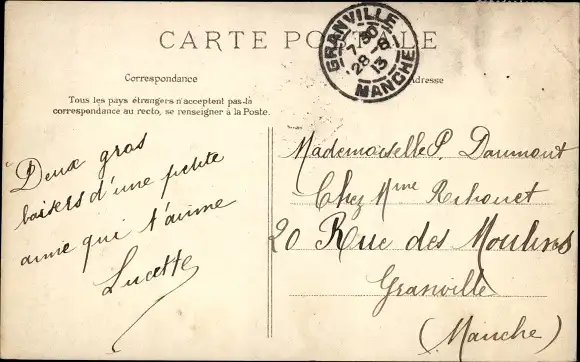 CARTE POSTALE
GRANVILLE
7 30
28 -8
13
MANCHE
Correspondance
Adresse
Tous les pays étrangers n'acceptent pas-là
correspondance au recto, se renseigner à la Poste.
Deux gros
baisers d'une petite
amie qui t'aime
Lucette
Mademoiselle P. Daumont
Chez Mme Rihouet
20 Rue des Moulins
Granville
(Manche)